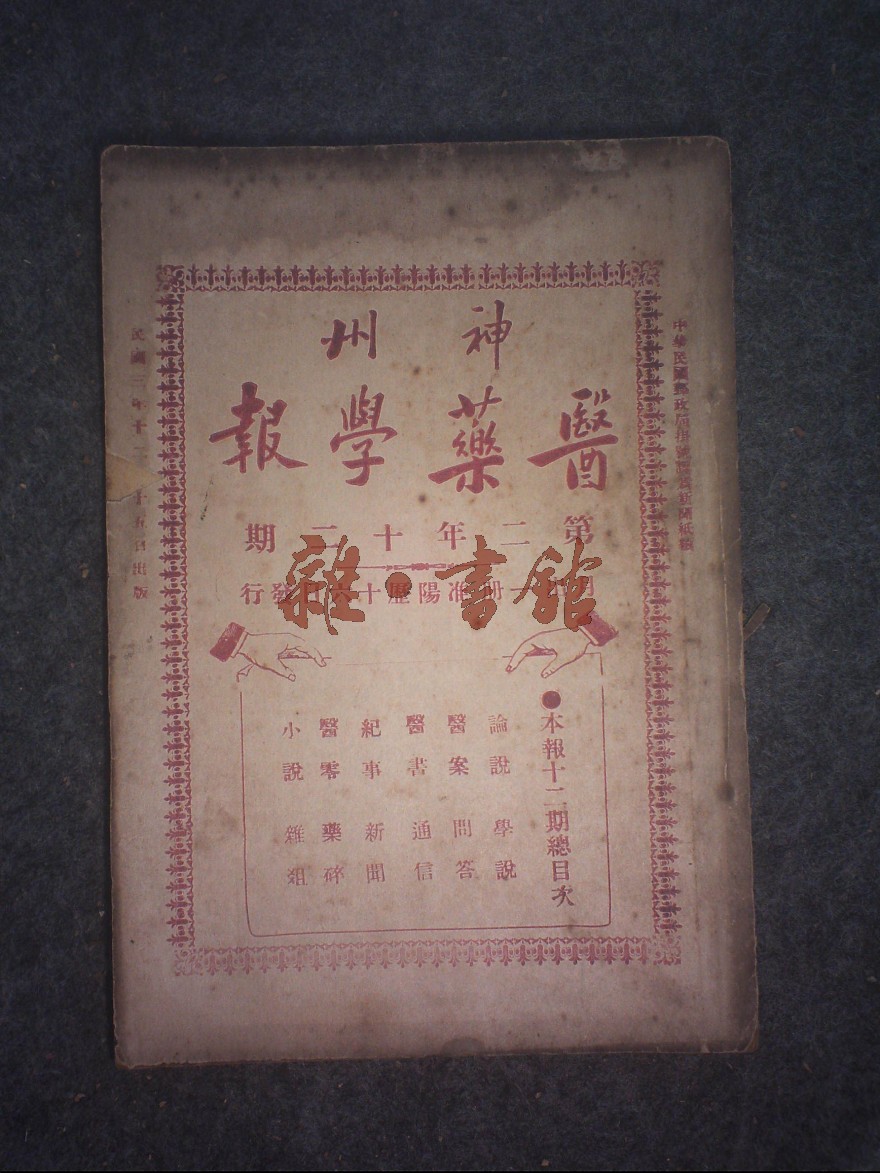 中華民國郵政局掛號認爲新聞紙類
神州
醫藥學報
第二年十二期
月出一册准陽歷十六日發行
雜·書館
●本報十二期總目次
論說 學說
醫案 問答
醫書 通信
紀事 新聞
醫零 藥碎
小說 雜俎
民國三年十二月十五日出版